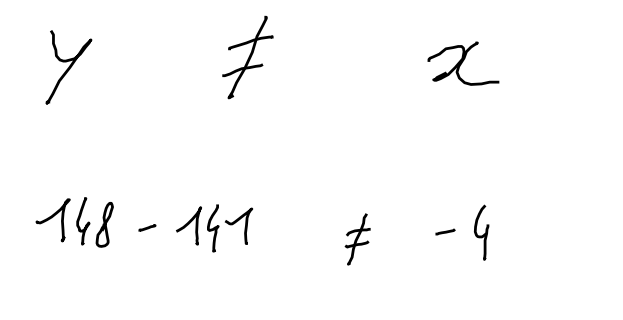 y ≠ x
148 - 141 ≠ -4